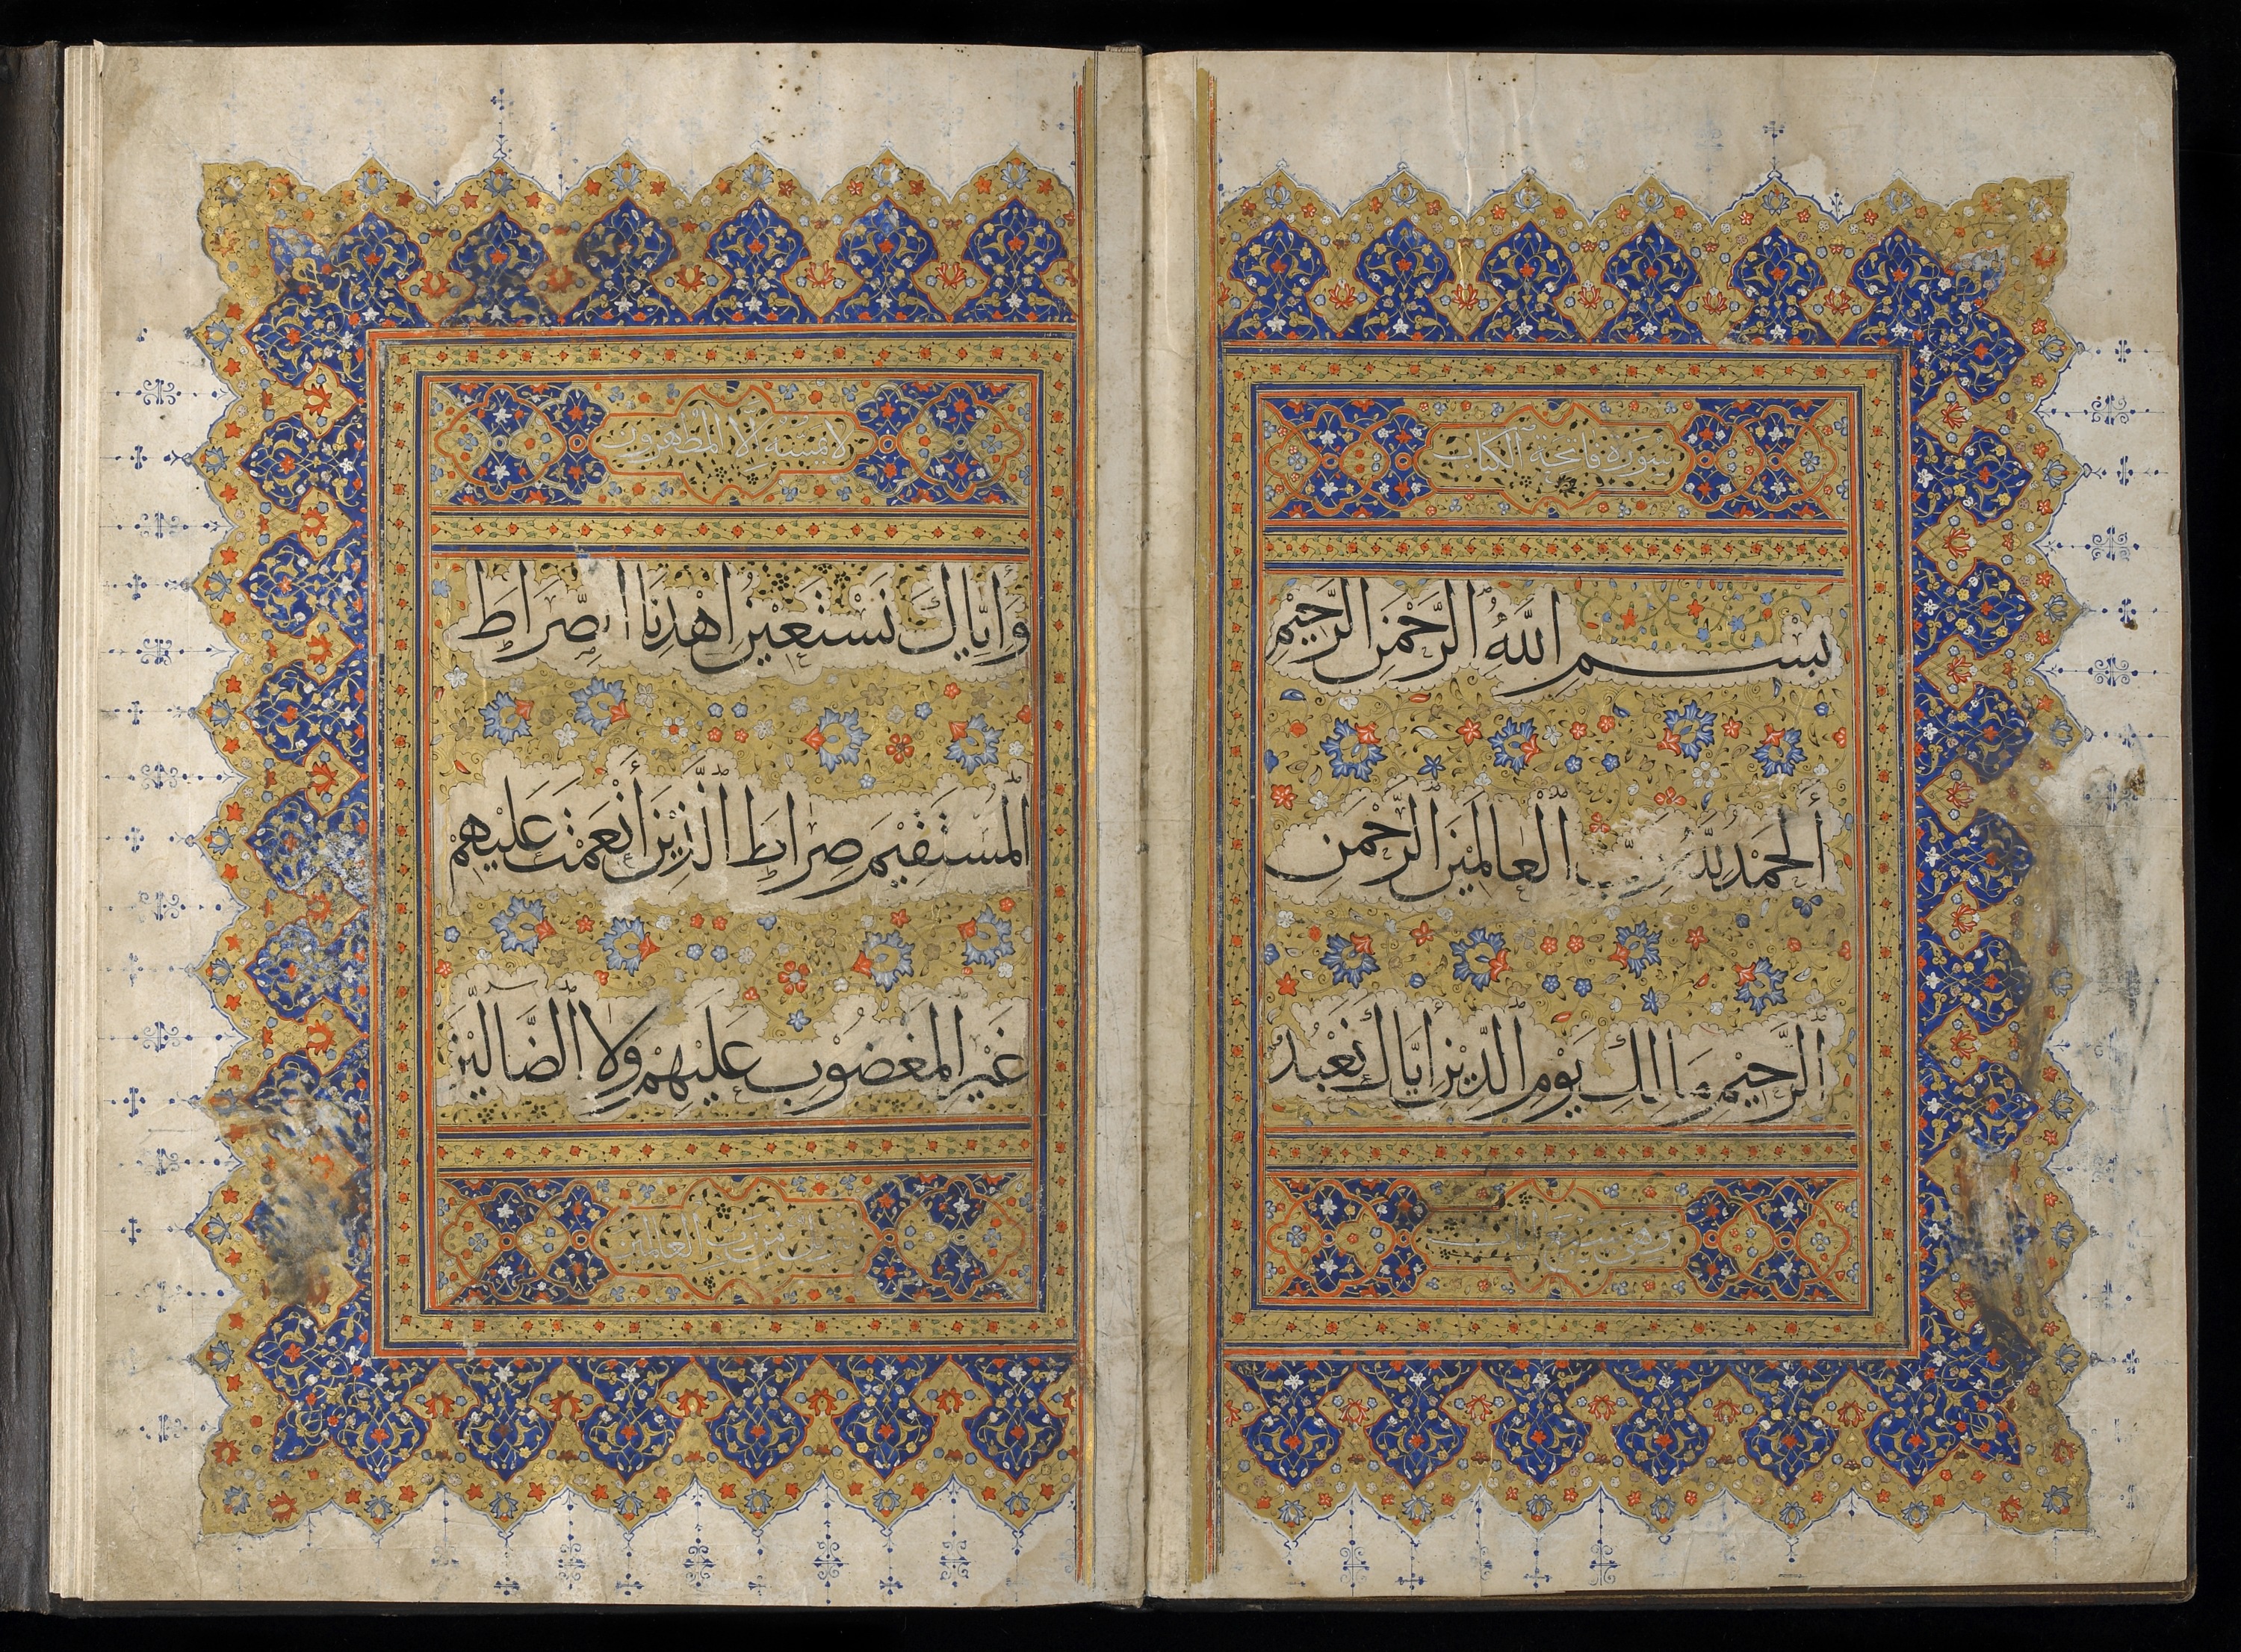 سورة فاتحة الكتاب
بسم الله الرحمن الرحيم
ألحمد لله رب العالمين الرحمن
الرحيم مالك يوم الدين اياك نعبد
وهي سبع
لا يمسه إلا المطهرون
وإياك نستعين اهدنا الصراط
المستقيم صراط الذين أنعمت عليهم
غير المغضوب عليهم ولا الضالين
من رب العالمين